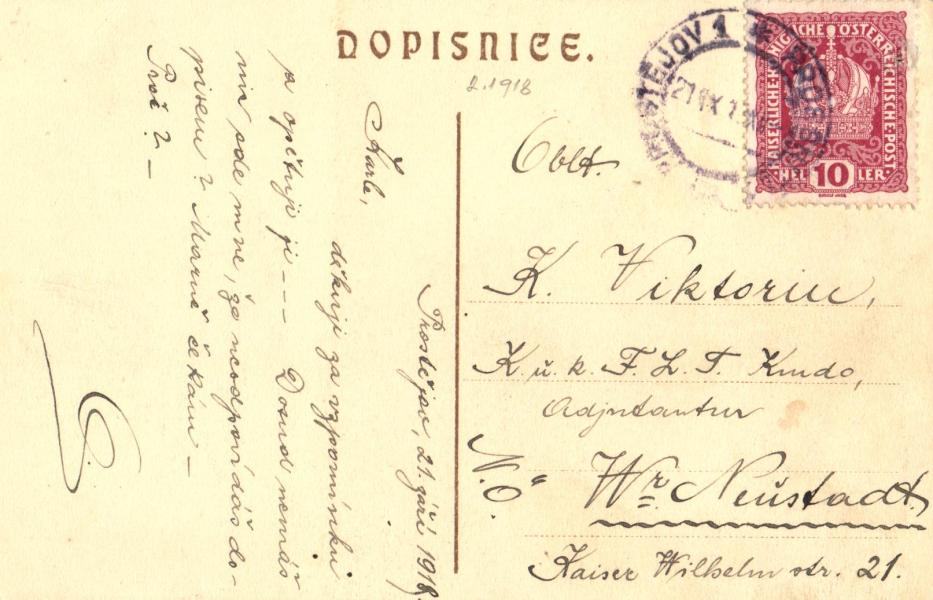 DOPISNICE.
2.1918
PROSTĚJOV 1
21 IX 1
KAISERLICHE KÖNIGLICHE ÖSTERREICHISCHE POST
HELLER
10
Prostějov, 21. září 1918.
Karle,
děkuji za vzpomínku
a opětuji ji - - - Dosud nemáš
mne, že neodpovídáš do-
pisem? Marně čekám —
Proč? —
Oblt.
K. Viktorin,
K. u. k. F. L. T. Kmdo,
Adjutantur
N. Ö.
Wr. Neustadt
Kaiser Wilhelm str. 21.